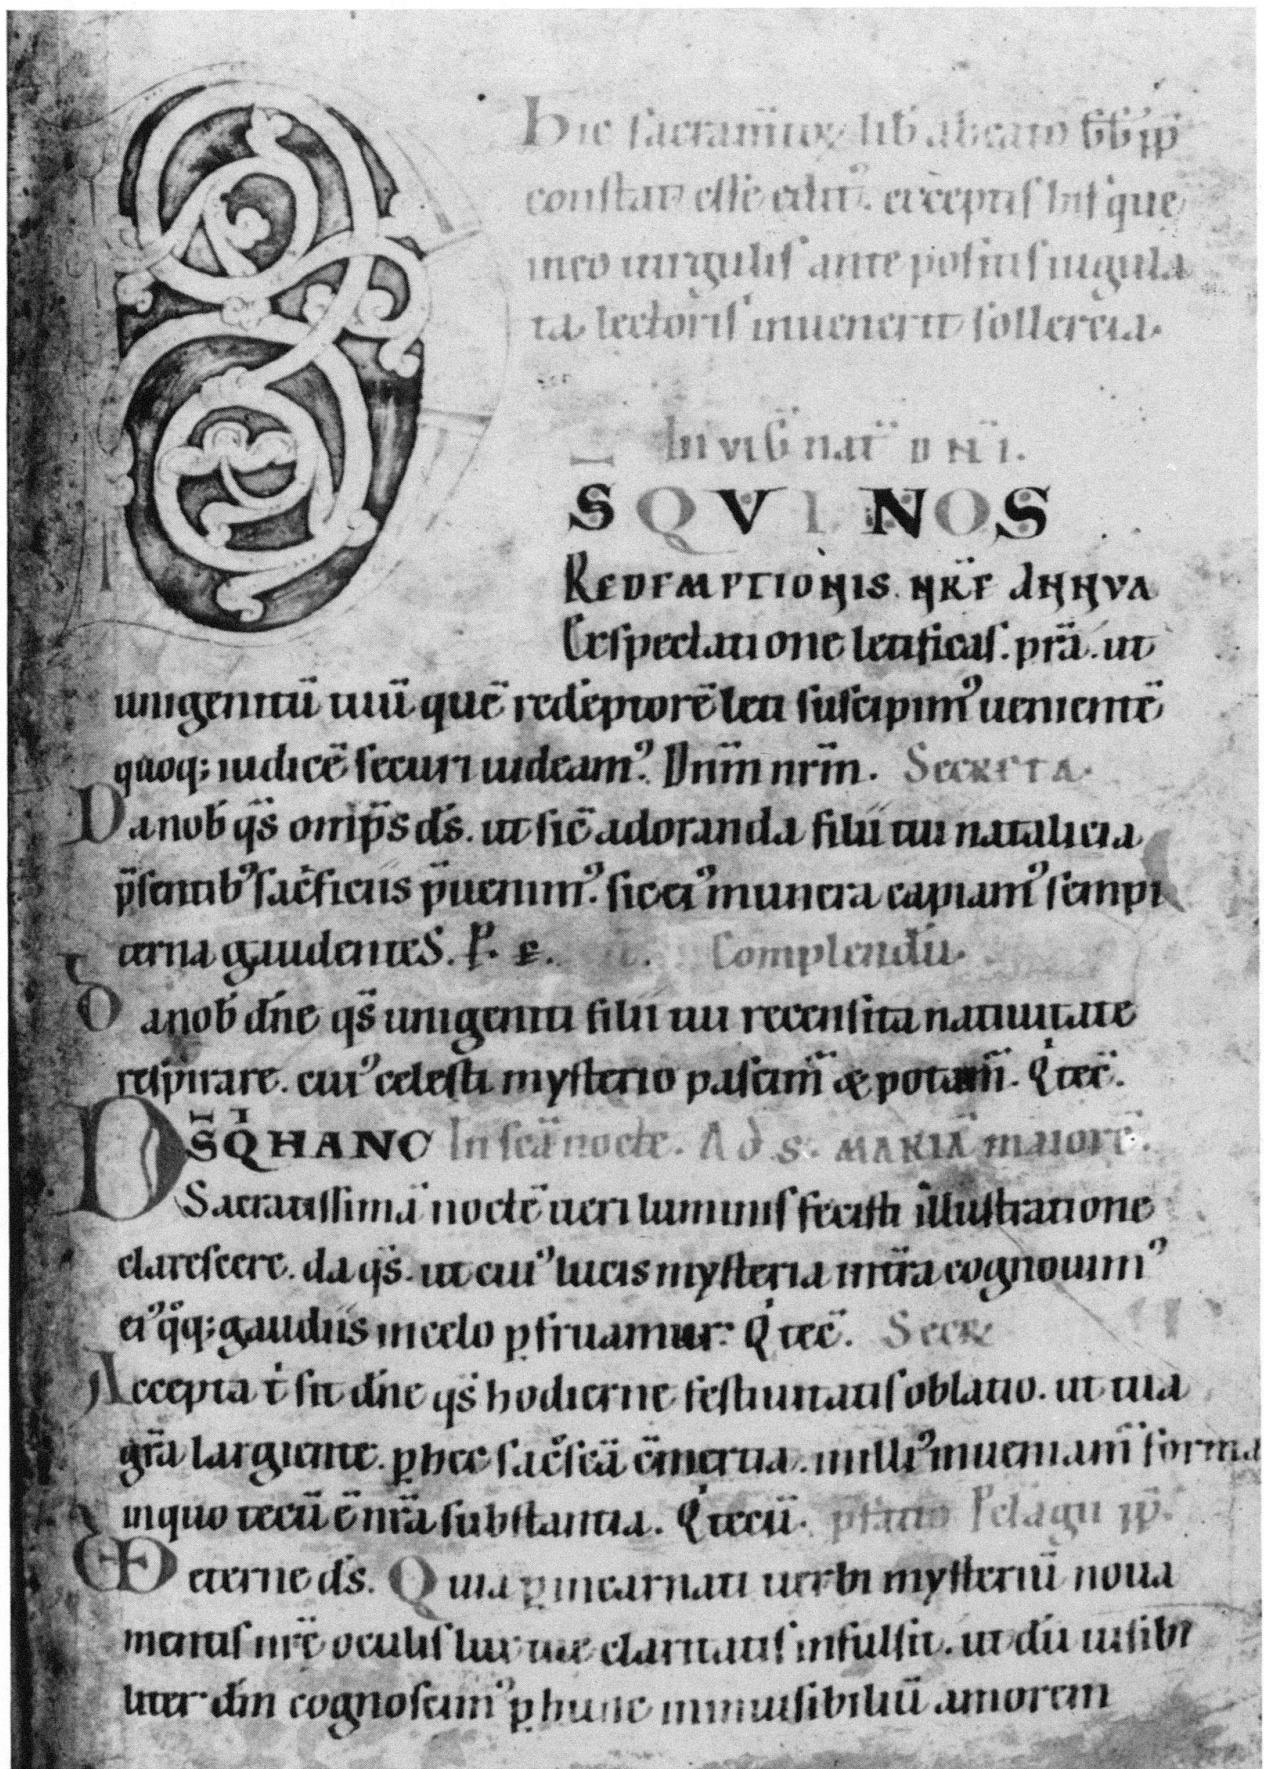 Hic sacram̄tor̄ lib̄ a beato GG pp̄
constat esse edit᾽. exceptis his que
in eo uirgulis ante positis iugula
ta lectoris inuenerit sollercia.
In viḡ nat̄ dn̄i.
D S̄ Q̄VI NOS
REDEMPTIONIS NR̄E ANNVA
Exspectatione letificas. pr̄a. ut
unigenitū tuū quē redēptorē leti suscipim᾽ uenientē
quoq; iudicē securi uideam᾽. Dn̄m nr̄m. SECRETA.
Da nob̄ qs̄ omp̄s ds̄. ut sic̄ adoranda filii tui natalicia
p̄sentib᾽ sac̄ficiis p̄uenim᾽. sic ei᾽ munera capiam᾽ sempi
terna gaudentes. P. e. Complendū.
Da nob̄ dn̄e qs̄ unigeniti filii tui recensita natiuitate
respirare. cui᾽ celesti mysterio pascim̄ & potam̄. Q tec̄.
DS̄ Q̄ HANC In sc̄a nocte. Ad S. MARIĀ maiorē.
Sacratissimā noctē ueri luminis fecisti illustratione
clarescere. da qs̄. ut cui᾽ lucis mysteria in tr̄a cognouim᾽
ei᾽ qq; gaudiis in celo ꝑfruamur. Q tec̄. Secr̄
Accepta t̄ sit dn̄e qs̄ hodierne festiuitatis oblatio. ut tua
gr̄a largiente. ꝑ hec sac̄sc̄a cm̄ertia. in illi᾽ inueniam̄ forma
in quo tecū ē nr̄a substantia. Q tecū. p̄fatio Pelagii pp̄.
VD eterne ds̄. Quia ꝑ incarnati uerbi mysteriū noua
mentis nr̄e oculis lux tue claritatis infulsit. ut dū uisibi
liter dm̄ cognoscim᾽ ꝑ hunc in inuisibiliū amorem